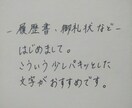 -履歴書・御礼状など-
はじめまして。
こういう少しパキッとした
文字がおすすめです。